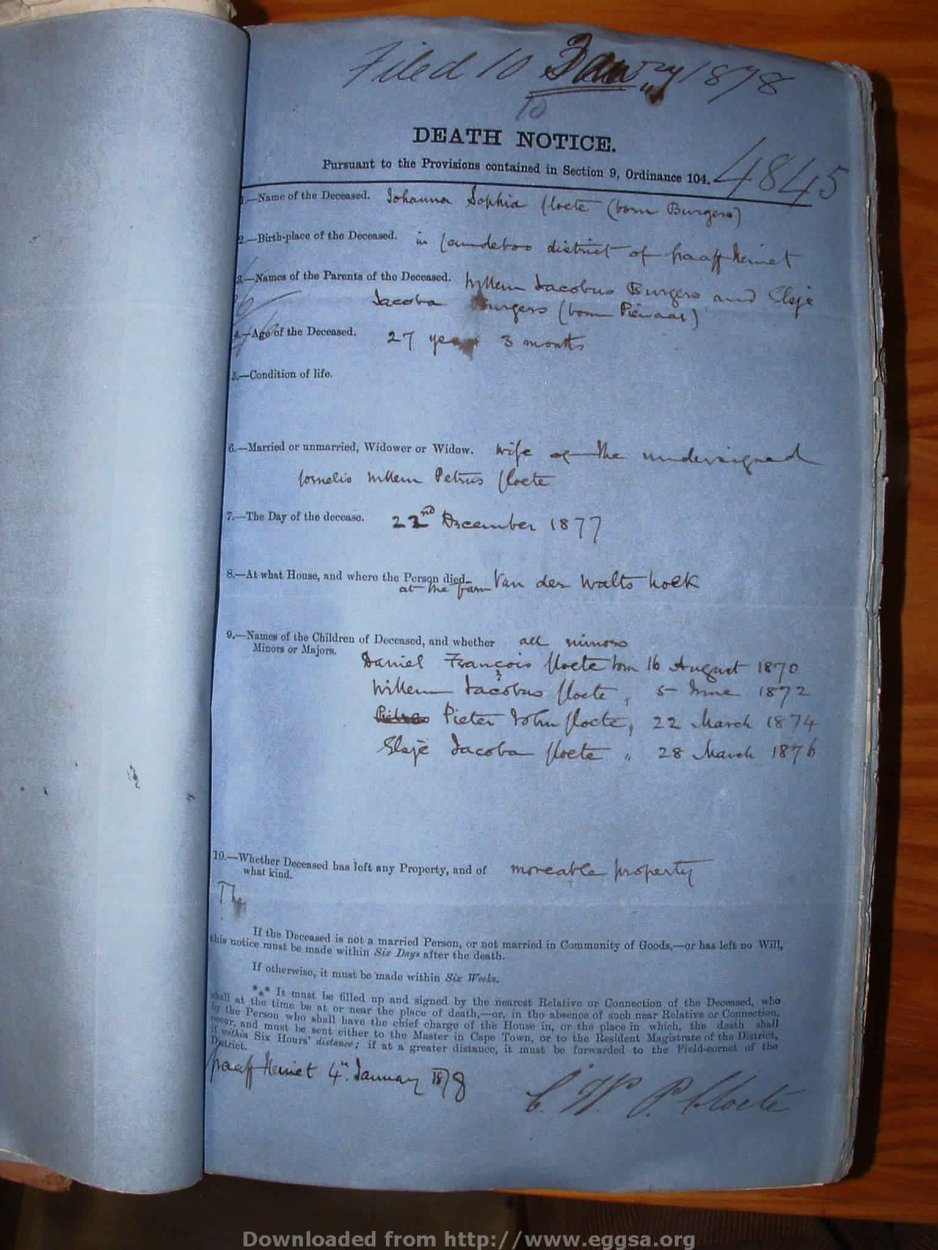 Filed 10 Jan'ry 1878
DEATH NOTICE.
Pursuant to the Provisions contained in Section 9, Ordinance 104.
4845
1.—Name of the Deceased. Johanna Sophia Cloete (born Burgers)
2.—Birth-place of the Deceased. in Camdeboo district of Graaff Reinet
3.—Names of the Parents of the Deceased. Willem Jacobus Burgers and Elsje
Jacoba Burgers (born Pienaar)
4.—Age of the Deceased. 27 years 3 months
5.—Condition of life.
6.—Married or unmarried, Widower or Widow. Wife of the undersigned
Cornelis Willem Petrus Cloete
7.—The Day of the decease. 22nd December 1877
8.—At what House, and where the Person died. Van der Walts hoek
at the farm
9.—Names of the Children of Deceased, and whether all minors
Minors or Majors.
Daniel François Cloete born 16 August 1870
Willem Jacobus Cloete, " 5 June 1872
Pieter John Cloete, 22 March 1874
Elsje Jacoba Cloete " 28 March 1876
10.—Whether Deceased has left any Property, and of moveable property
what kind.
Th
If the Deceased is not a married Person, or not married in Community of Goods,—or has left no Will,
this notice must be made within Six Days after the death.
If otherwise, it must be made within Six Weeks.
*** It must be filled up and signed by the nearest Relative or Connection of the Deceased, who
shall at the time be at or near the place of death,—or, in the absence of such near Relative or Connection,
by the Person who shall have the chief charge of the House in, or the place in which, the death shall
occur, and must be sent either to the Master in Cape Town, or to the Resident Magistrate of the District,
if within Six Hours' distance; if at a greater distance, it must be forwarded to the Field-cornet of the
District.
Graaff Reinet 4th January 1878
C. W. P. Cloete
Downloaded from http://www.eggsa.org